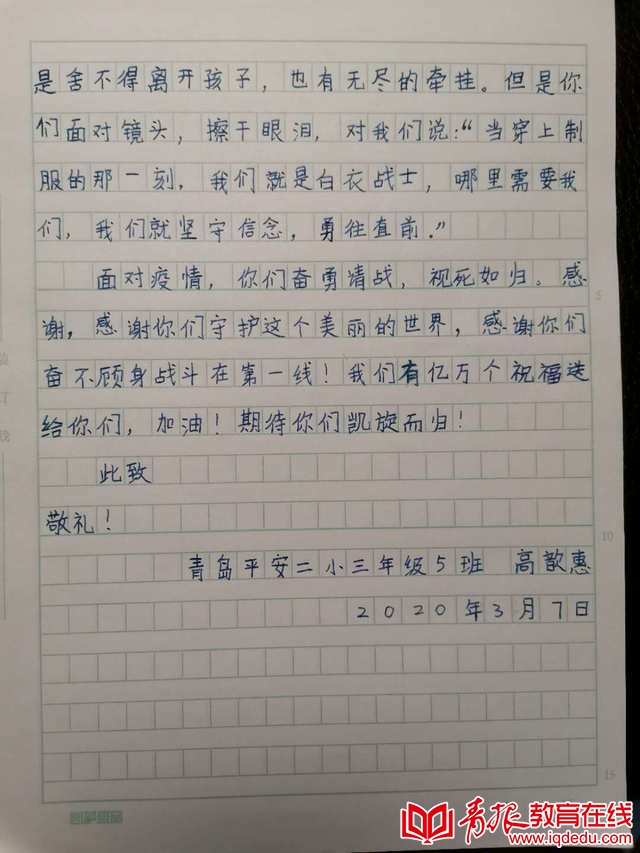 是舍不得离开孩子，也有无尽的牵挂。但是你
们面对镜头，擦干眼泪，对我们说：“当穿上制
服的那一刻，我们就是白衣战士，哪里需要我
们，我们就坚守信念，勇往直前.”
面对疫情，你们奋勇请战，视死如归。感
谢，感谢你们守护这个美丽的世界，感谢你们
奋不顾身战斗在第一线！我们有亿万个祝福送
给你们，加油！期待你们凯旋而归！
此致
敬礼！
青岛平安二小三年级5班 高歆惠
2020年3月7日
5
10
15
青报教育在线
www.iqdedu.com